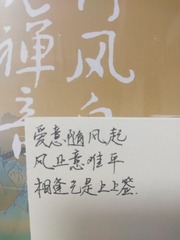 风
禅意
爱意随风起
风止意难平
相逢已是上上签.